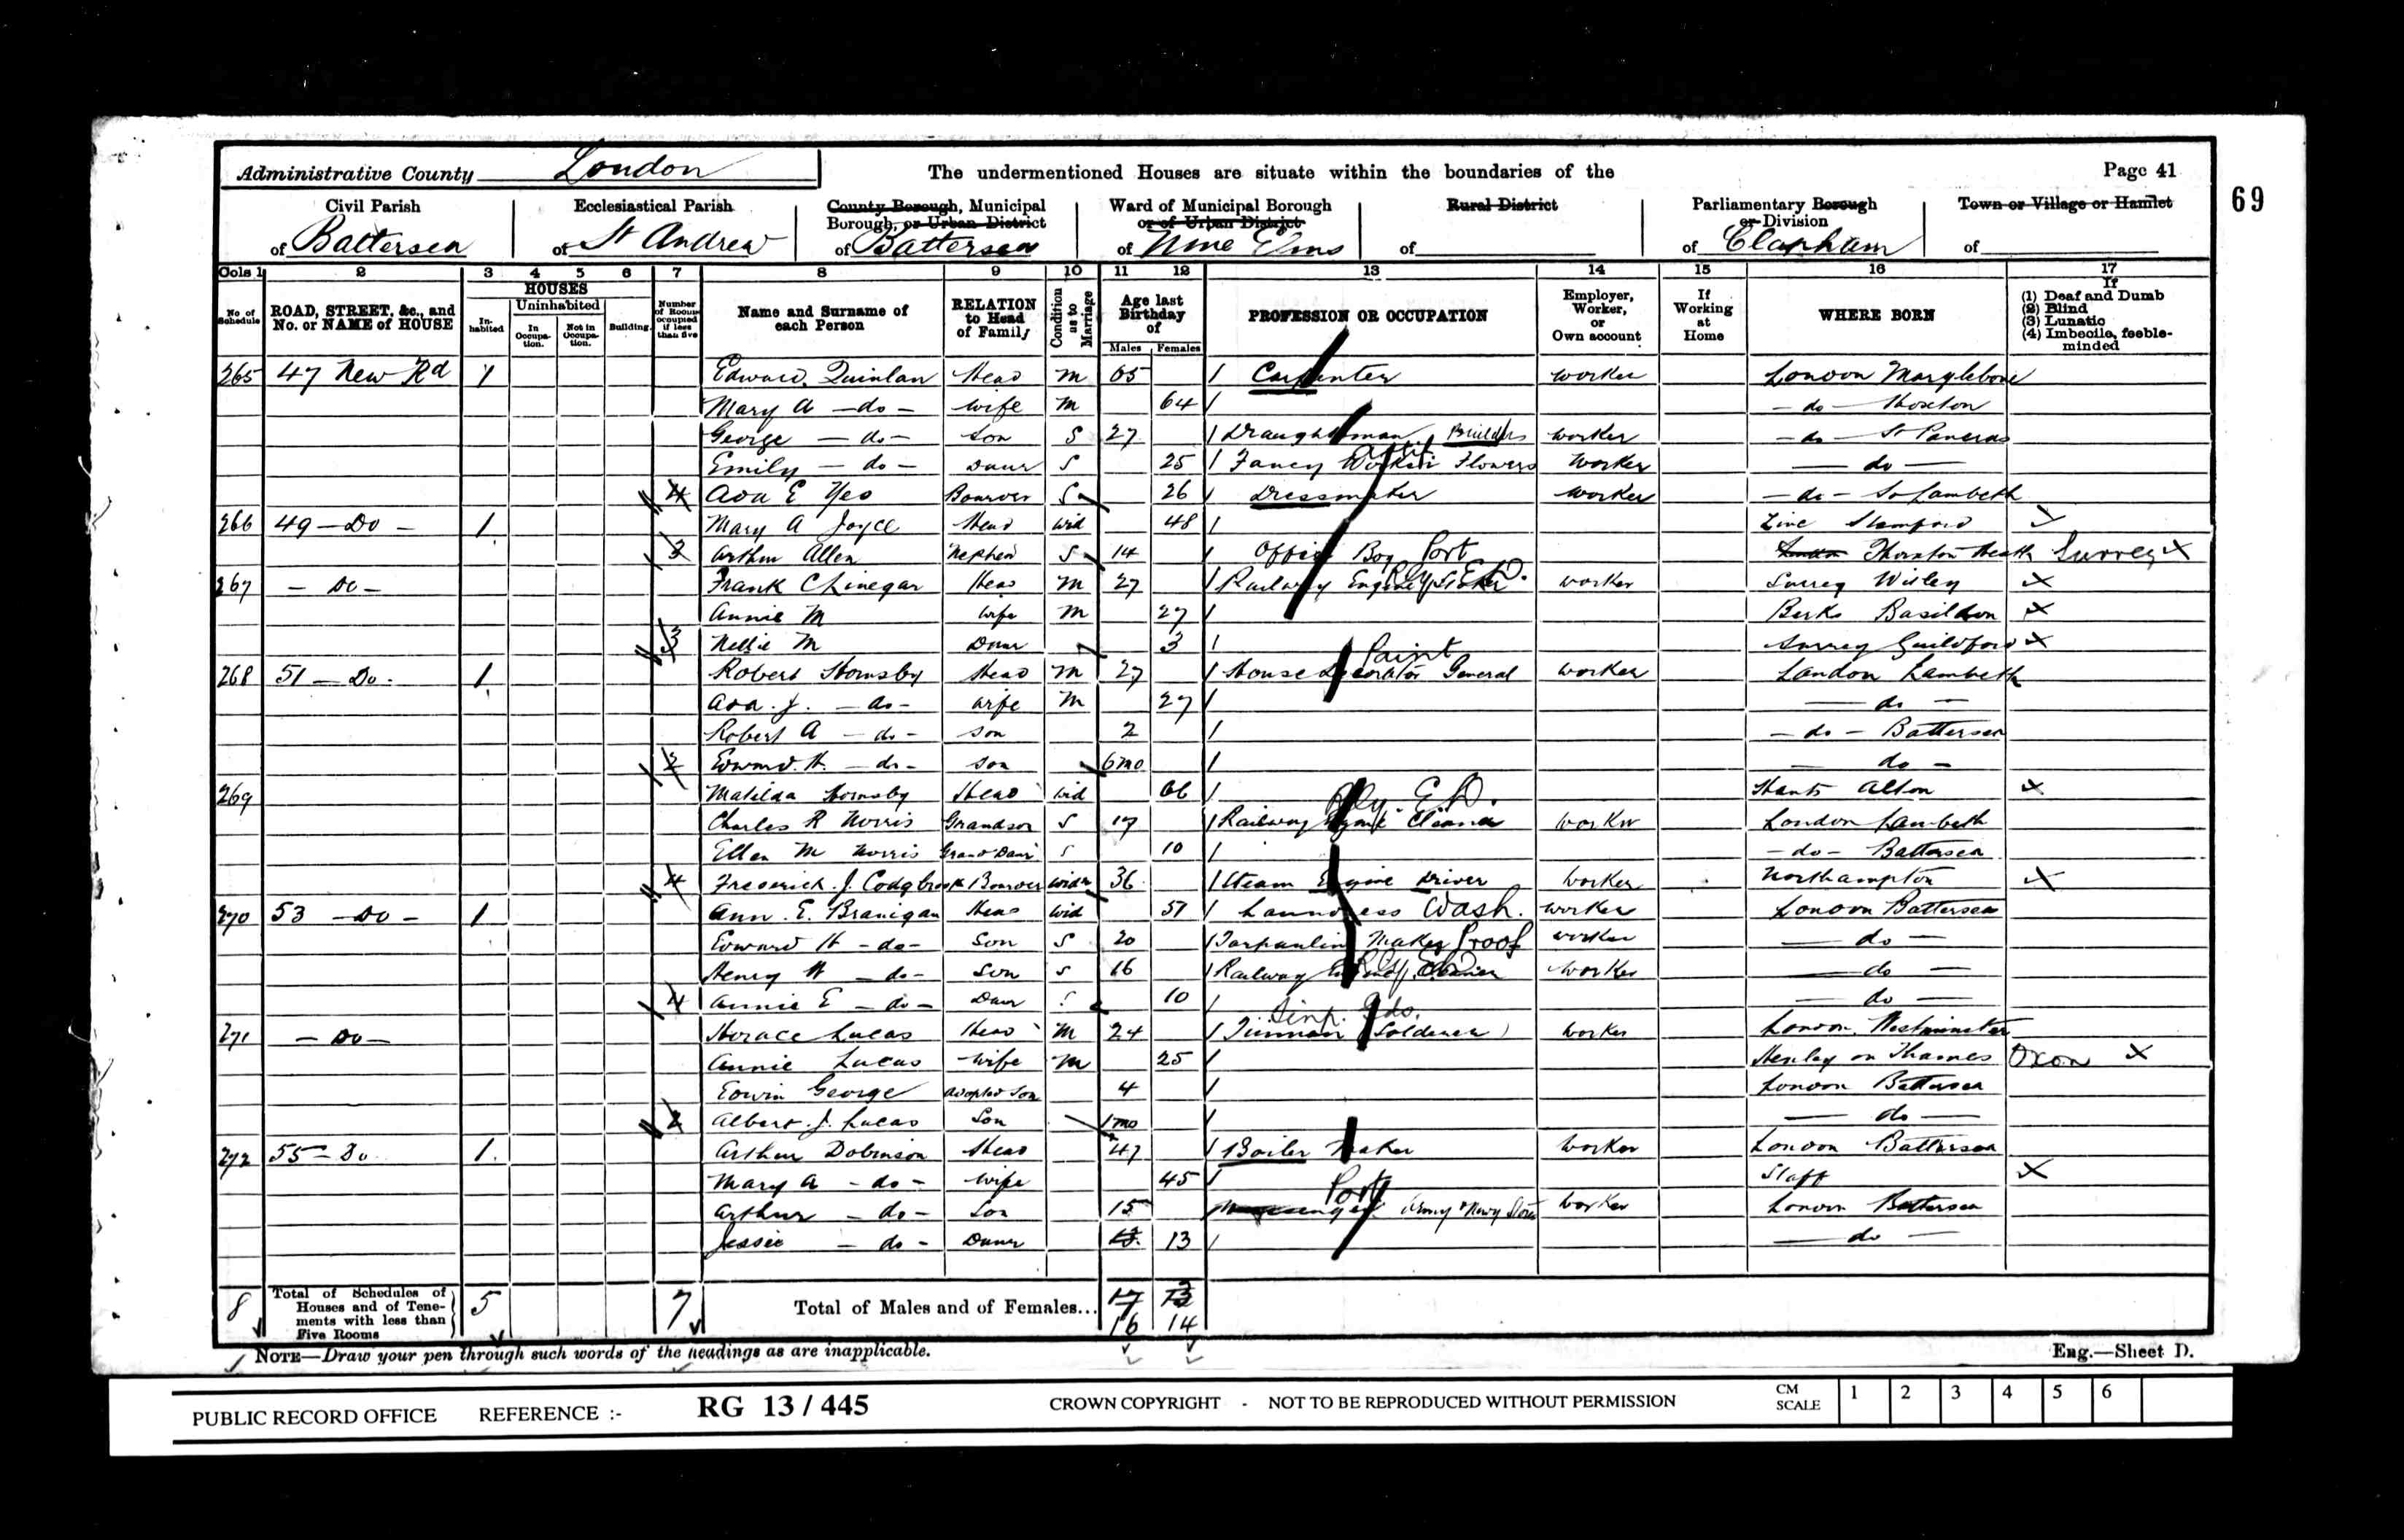 Administrative County London
The undermentioned Houses are situate within the boundaries of the
Page 41
69
Civil Parish of Battersea
Ecclesiastical Parish of St Andrew
County Borough, Municipal Borough, or Urban District of Battersea
Ward of Municipal Borough or of Urban District of Nine Elms
Rural District of
Parliamentary Borough or Division of Clapham
Town or Village or Hamlet of
Cols 1 2 3 4 5 6 7 8 9 10 11 12 13 14 15 16 17
No. of Schedule
ROAD, STREET, &c., and No. or NAME of HOUSE
HOUSES
In-habited
Uninhabited
In Occupa-tion.
Not in Occupa-tion.
Building.
Number of Rooms occupied if less than five
Name and Surname of each Person
RELATION to Head of Family
Condition as to Marriage
Age last Birthday of
Males Females
PROFESSION OR OCCUPATION
Employer, Worker, or Own account
If Working at Home
WHERE BORN
If (1) Deaf and Dumb (2) Blind (3) Lunatic (4) Imbecile, feeble-minded
265 47 New Rd 1 Edward Quinlan Head M 65 Carpenter worker London Marylebone
Mary A - do - wife M 64 - do - Hoxton
George - do - Son S 27 Draughtsman Builders worker - do - St Pancras
Emily - do - Daur S 25 Fancy Worker Flowers Artif worker - do -
4 Ada E Yeo Boarder S 26 Dressmaker worker - do - So Lambeth
266 49 - Do - 1 Mary A Joyce Head wid 48 Linc Stamford
3 Arthur Allen Nephew S 14 Office Boy Port Thornton Heath Surrey X
267 - Do - Frank Chinegar Head M 27 Railway Engine Stoker Rly E.D. worker Surrey Wisley X
Annie M wife M 27 Berks Basildon X
3 Nellie M Daur 3 Surrey Guildford X
268 51 - Do - 1 Robert Hornsby Head M 27 House Decorator General Paint worker London Lambeth
Ada. J. - do - wife M 27 - do -
Robert A - do - son 2 - do - Battersea
2 Edward. H. - do - son 6 mo - do -
269 Matilda Hornsby Head wid 66 Hants Alton X
Charles R Norris Grandson S 17 Railway Engine Cleaner Rly. E.D. worker London Lambeth
Ellen M Norris Grand Daur S 10 - do - Battersea
4 Frederick. J. Codgbrook Boarder widr 36 Steam Engine Driver worker Northampton X
270 53 - Do - 1 Ann. E. Branigan Head wid 51 Laundress Wash. worker London Battersea
Edward H - do - Son S 20 Tarpaulin Maker Proof worker - do -
Henry W - do - Son S 16 Railway Engine Cleaner worker - do -
4 Annie E - do - Daur S 10 - do -
271 - Do - Horace Lucas Head M 24 Tinman (Solderer) worker London Westminster
Annie Lucas wife M 25 Henley on Thames Oxon X
Edwin George adopted Son 4 London Battersea
2 Albert. J. Lucas Son 1 mo - do -
272 55 - Do 1. Arthur Dobinson Head 47 Boiler Maker worker London Battersea
Mary A - do - wife 45 Staff X
Arthur - do - Son 15 Messenger Army & Navy Stores Port worker London Battersea
Jessie - do - Daur 13 13 - do -
8 Total of Schedules of Houses and of Tene-ments with less than Five Rooms 5 7 Total of Males and of Females... 17 13
16 14
NOTE—Draw your pen through such words of the headings as are inapplicable.
Eng.—Sheet D.
PUBLIC RECORD OFFICE REFERENCE :- RG 13 / 445 CROWN COPYRIGHT - NOT TO BE REPRODUCED WITHOUT PERMISSION CM SCALE 1 2 3 4 5 6